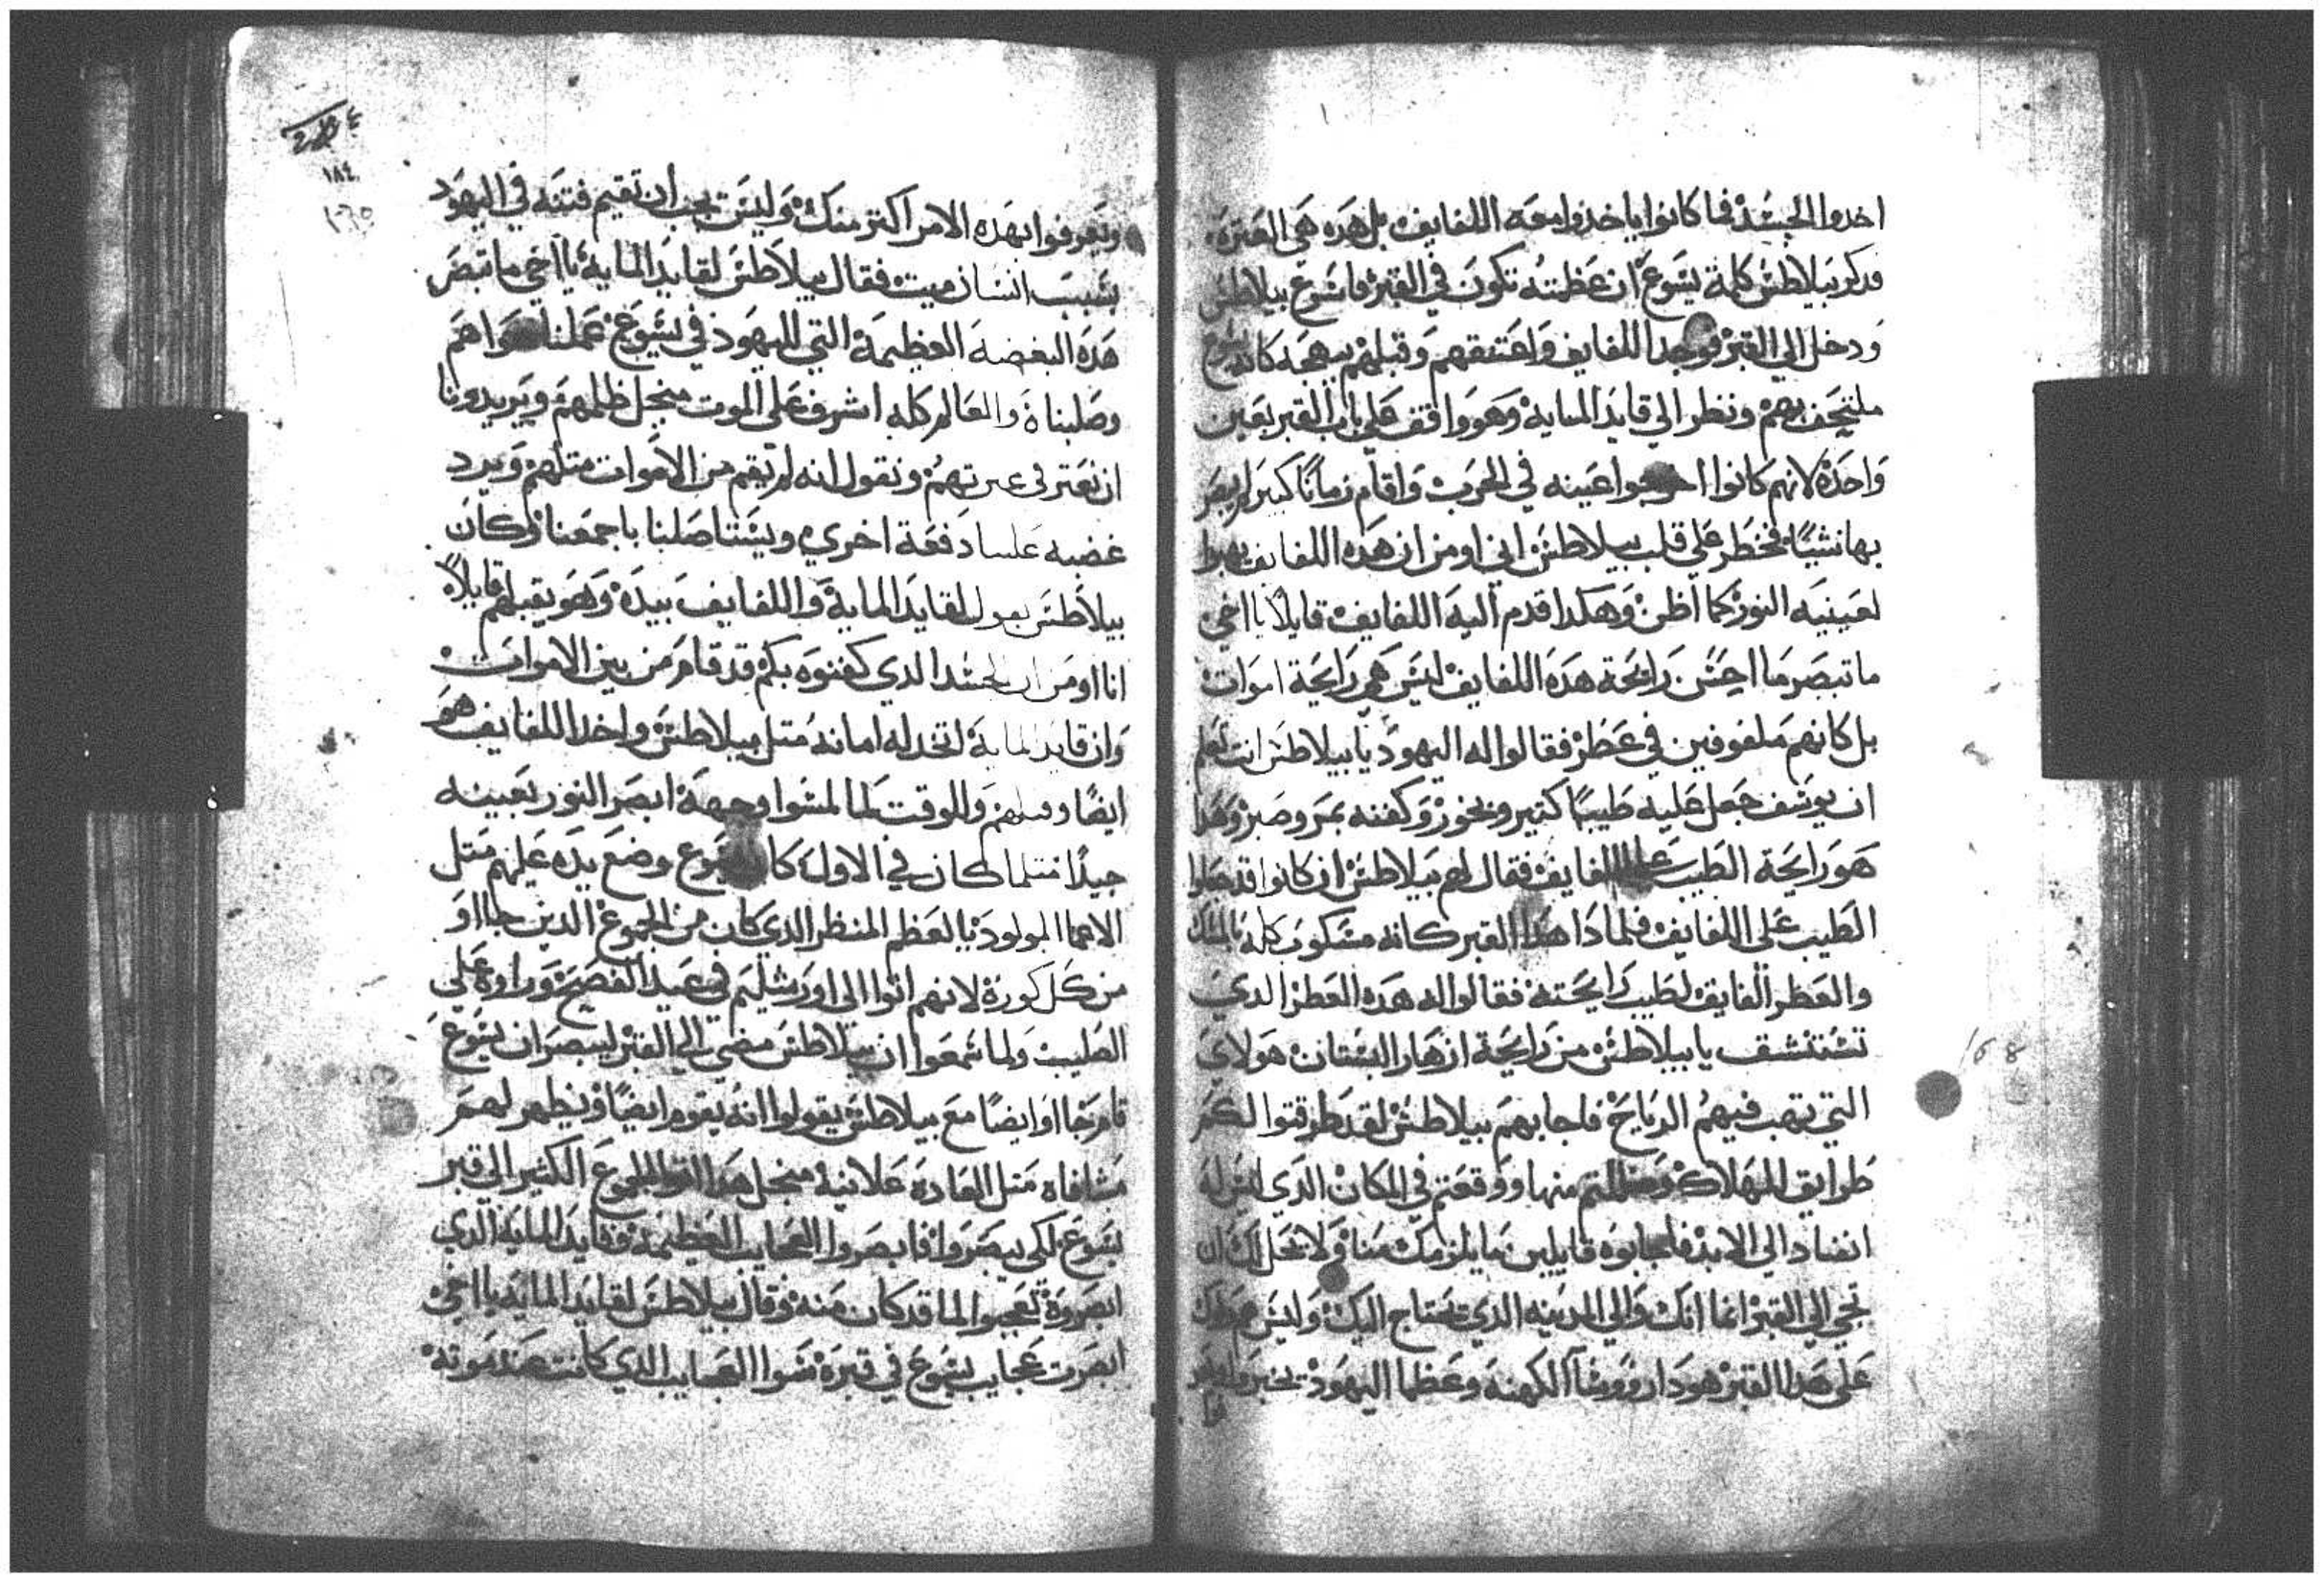 اخدوا الجسد فما كانوا ياخذوا معه اللفايف بل هده هي العترة
فدكر بيلاطس كلمة يسوع ان عظمته تكون في القبر فاسرع بيلاطس
ودخل الي القبر فوجد اللفايف واعتنقهم وقبلهم ببهجه كانه يسوع
ملتحف بهم ونظر الي قايد المايه وهو واقف علي باب القبر بعين
واحدة لانهم كانوا اخرجوا عينه في الحرب واقام زمانا كبير لم يبصر
بها شيا فخطر علي قلب بيلاطس اني اومن ان هده اللفايف يهبوا
لعينيه النور كما اظن وهكدا قدم اليه اللفايف قايلا يا اخي
ما تبصر ما احسن رايحة هده اللفايف ليس هي رايحة اموات
بل كانهم ملفوفين في عطر فقالوا له اليهود يا بيلاطس انت تعلم
ان يوسف جعل عليه طيبا كتير وبخور وكفنه بمر وصبر وهدا
هو رايحة الطيب علي اللفايف فقال لهم بيلاطس ان كانوا قد جعلوا
الطيب علي اللفايف فلمادا هدا القبر كانه مسكوب كله بالمسك
والعطر الفايق لطيب رايحته فقالوا له هده العطر الدي
تستنشق يا بيلاطس من رايحة ازهار البستان هولاي
التي تهب فيهم الرياح فاجابهم بيلاطس لقد طرقتوا لكم
طرايق للهلاك وضللتم منها ووقعتم في المكان الدي ليس له
انفساد الي الابد فاجابوه قايلين ما يلزمك منا ولا يحل لك ان
تجي الي القبر انما انك والي المدينه الدي تحتاج اليك وليس هم
علي هدا القبر هودا روسا الكهنه وعظما اليهود
ويعرفوا بهده الامر اكتر منك وليس يجب ان تقيم فتنه في اليهود
بسبب انسان ميت فقال بيلاطس لقايد المايه يا اخي ما تبصر
هده البغضه العظيمة التي لليهود في يسوع عملنا هواهم
وصلبناه والعالم كله اشرف علي الموت منجل ظلمهم ويريدونا
ان نعتر في عترتهم ونقول انه لم يقم من الاموات متلهم ويرد
غضبه علينا دفعة اخري ويستاصلنا باجمعنا وكان
بيلاطس يقول لقايد الماية واللفايف بيده وهو يقبلهم قايلا
انا اومن ان الجسد الدي كفنوه بكم قد قام من بين الاموات
وان قايد الماية اتخد له امانه متل بيلاطس واخد اللفايف هو
ايضا وقبلهم والوقت لما لمسوا وجهه ابصر النور بعينه
جيدا متلما كان في الاول كان يسوع وضع يده عليهم متل
الاعما المولود يا لعظم المنظر الدي كان من الجموع الدين جااو
من كل كورة لانهم اتوا الي اورشليم في عيد الفصح وراوه علي
الصليب ولما سمعوا ان بيلاطس مضي الي القبر ليبصر ان يسوع
قام جااو ايضا مع بيلاطس يقولوا انه يقوم ايضا ويظهر لهم
مشافاه متل العاده علانيه منجل هدا اتوا الجموع الكثير الي قبر
يسوع لكي يبصروا فابصروا العجايب العظيمة وقايد المايه الدي
ابصروه تعجبوا لما قد كان منه وقال بيلاطس لقايد المايه يا اخي
ابصرت عجايب يسوع في قبره سوا العجايب الدي كانت عند موته
١٨٤
168